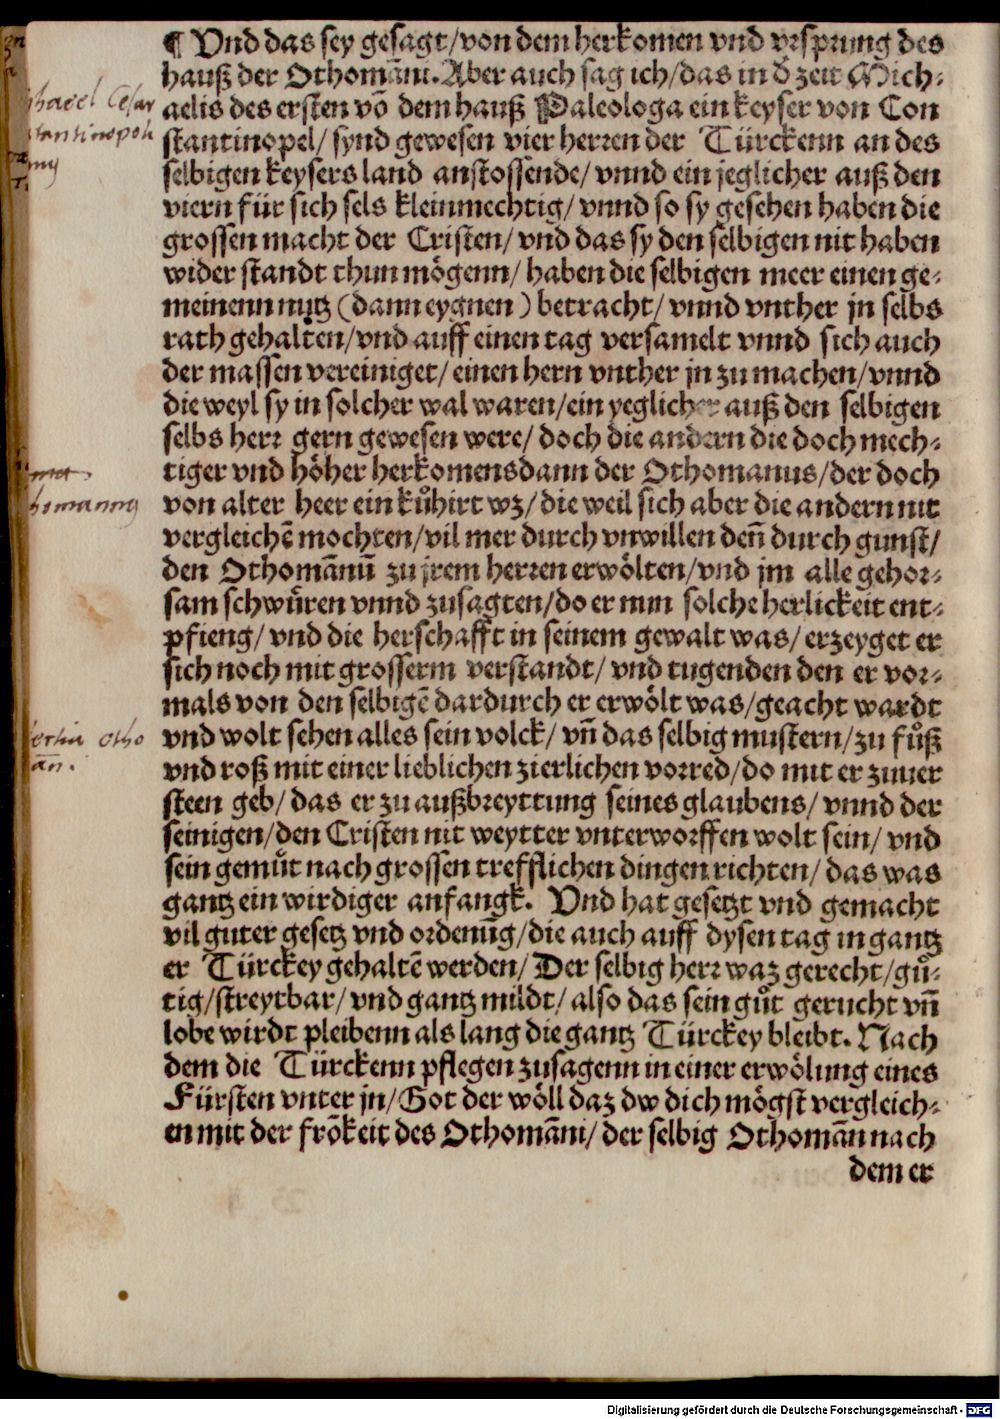 ¶ Vnd das sey gesagt/von dem herkomen vnd vrsprung des
hauß der Othomāni. Aber auch sag ich/das in d̕ zeit Mich-
aelis des ersten vō dem hauß Paleologa ein keyser von Con
stantinopel/ synd gewesen vier herren der Türckenn an des
selbigen keysers land anstossende/ vnnd ein jeglicher auß den
viern für sich sels kleinmechtig/ vnnd so sy gesehen haben die
grossen macht der Cristen/ vnd das sy den selbigen nit haben
wider standt thun mögenn/ haben die selbigen meer einen ge-
meinenn nutz (dann eygnen) betracht/ vnnd vnther jn selbs
rath gehalten/vnd auff einen tag versamelt vnnd sich auch
der massen vereiniget/ einen hern vnther jn zu machen/vnnd
die weyl sy in solcher wal waren/ein yeglicher auß den selbigen
selbs herr gern gewesen were/ doch die andern die doch mech-
tiger vnd höher herkomens dann der Othomanus/der doch
von alter heer ein kůhirt wz/ die weil sich aber die andern nit
vergleichē mochten/vil mer durch vnwillen deñ durch gunst/
den Othomānū zu jrem herren erwölten/vnd jm alle gehor-
sam schwůren vnnd zusagten/do er nun solche herlickeit ent-
pfieng/ vnd die herschafft in seinem gewalt was/ erzeyget er
sich noch mit grosserm verstandt/ vnd tugenden den er vor-
mals von den selbigē dardurch er erwölt was/geacht wardt
vnd wolt sehen alles sein volck/ vñ das selbig mustern/zu fůß
vnd roß mit einer lieblichen zierlichen vorred/do mit er zuuer
steen geb/ das er zu außbreyttung seines glaubens/ vnnd der
seinigen/den Cristen nit weytter vnterworffen wolt sein/ vnd
sein gemůt nach grossen trefflichen dingen richten/ das was
gantz ein wirdiger anfangk. Vnd hat gesetzt vnd gemacht
vil guter gesetz vnd ordenūg/die auch auff dysen tag in gantz
er Türckey gehaltē werden/ Der selbig herr waz gerecht/gů-
tig/streytbar/ vnd gantz mildt/ also das sein gůt gerucht vñ
lobe wirdt pleibenn als lang die gantz Türckey bleibt. Nach
dem die Türckenn pflegen zusagenn in einer erwölung eines
Fürsten vnter jn/ Got der wöll daz dw dich mögst vergleich-
en mit der frōkeit des Othomāni/ der selbig Othomān nach
dem er
hael Cesar
stantinopoli
homannus
otho
an.
Digitalisierung gefördert durch die Deutsche Forschungsgemeinschaft - DFG